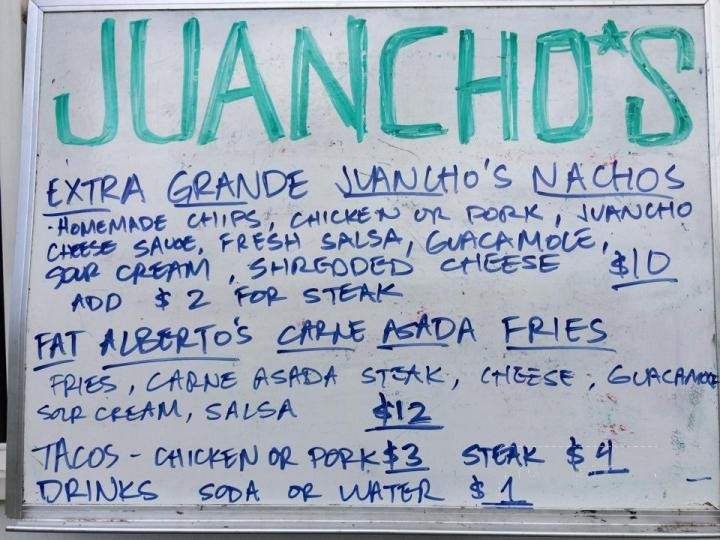 JUANCHO*S
EXTRA GRANDE JUANCHO'S NACHOS
-HOMEMADE CHIPS, CHICKEN OR PORK, JUANCHO
CHEESE SAUCE, FRESH SALSA, GUACAMOLE,
SOUR CREAM, SHREDDED CHEESE $10
ADD $2 FOR STEAK
FAT ALBERTO'S CARNE ASADA FRIES
FRIES, CARNE ASADA STEAK, CHEESE, GUACAMOLE
SOUR CREAM, SALSA $12
TACOS - CHICKEN OR PORK $3 STEAK $4
DRINKS SODA OR WATER $1